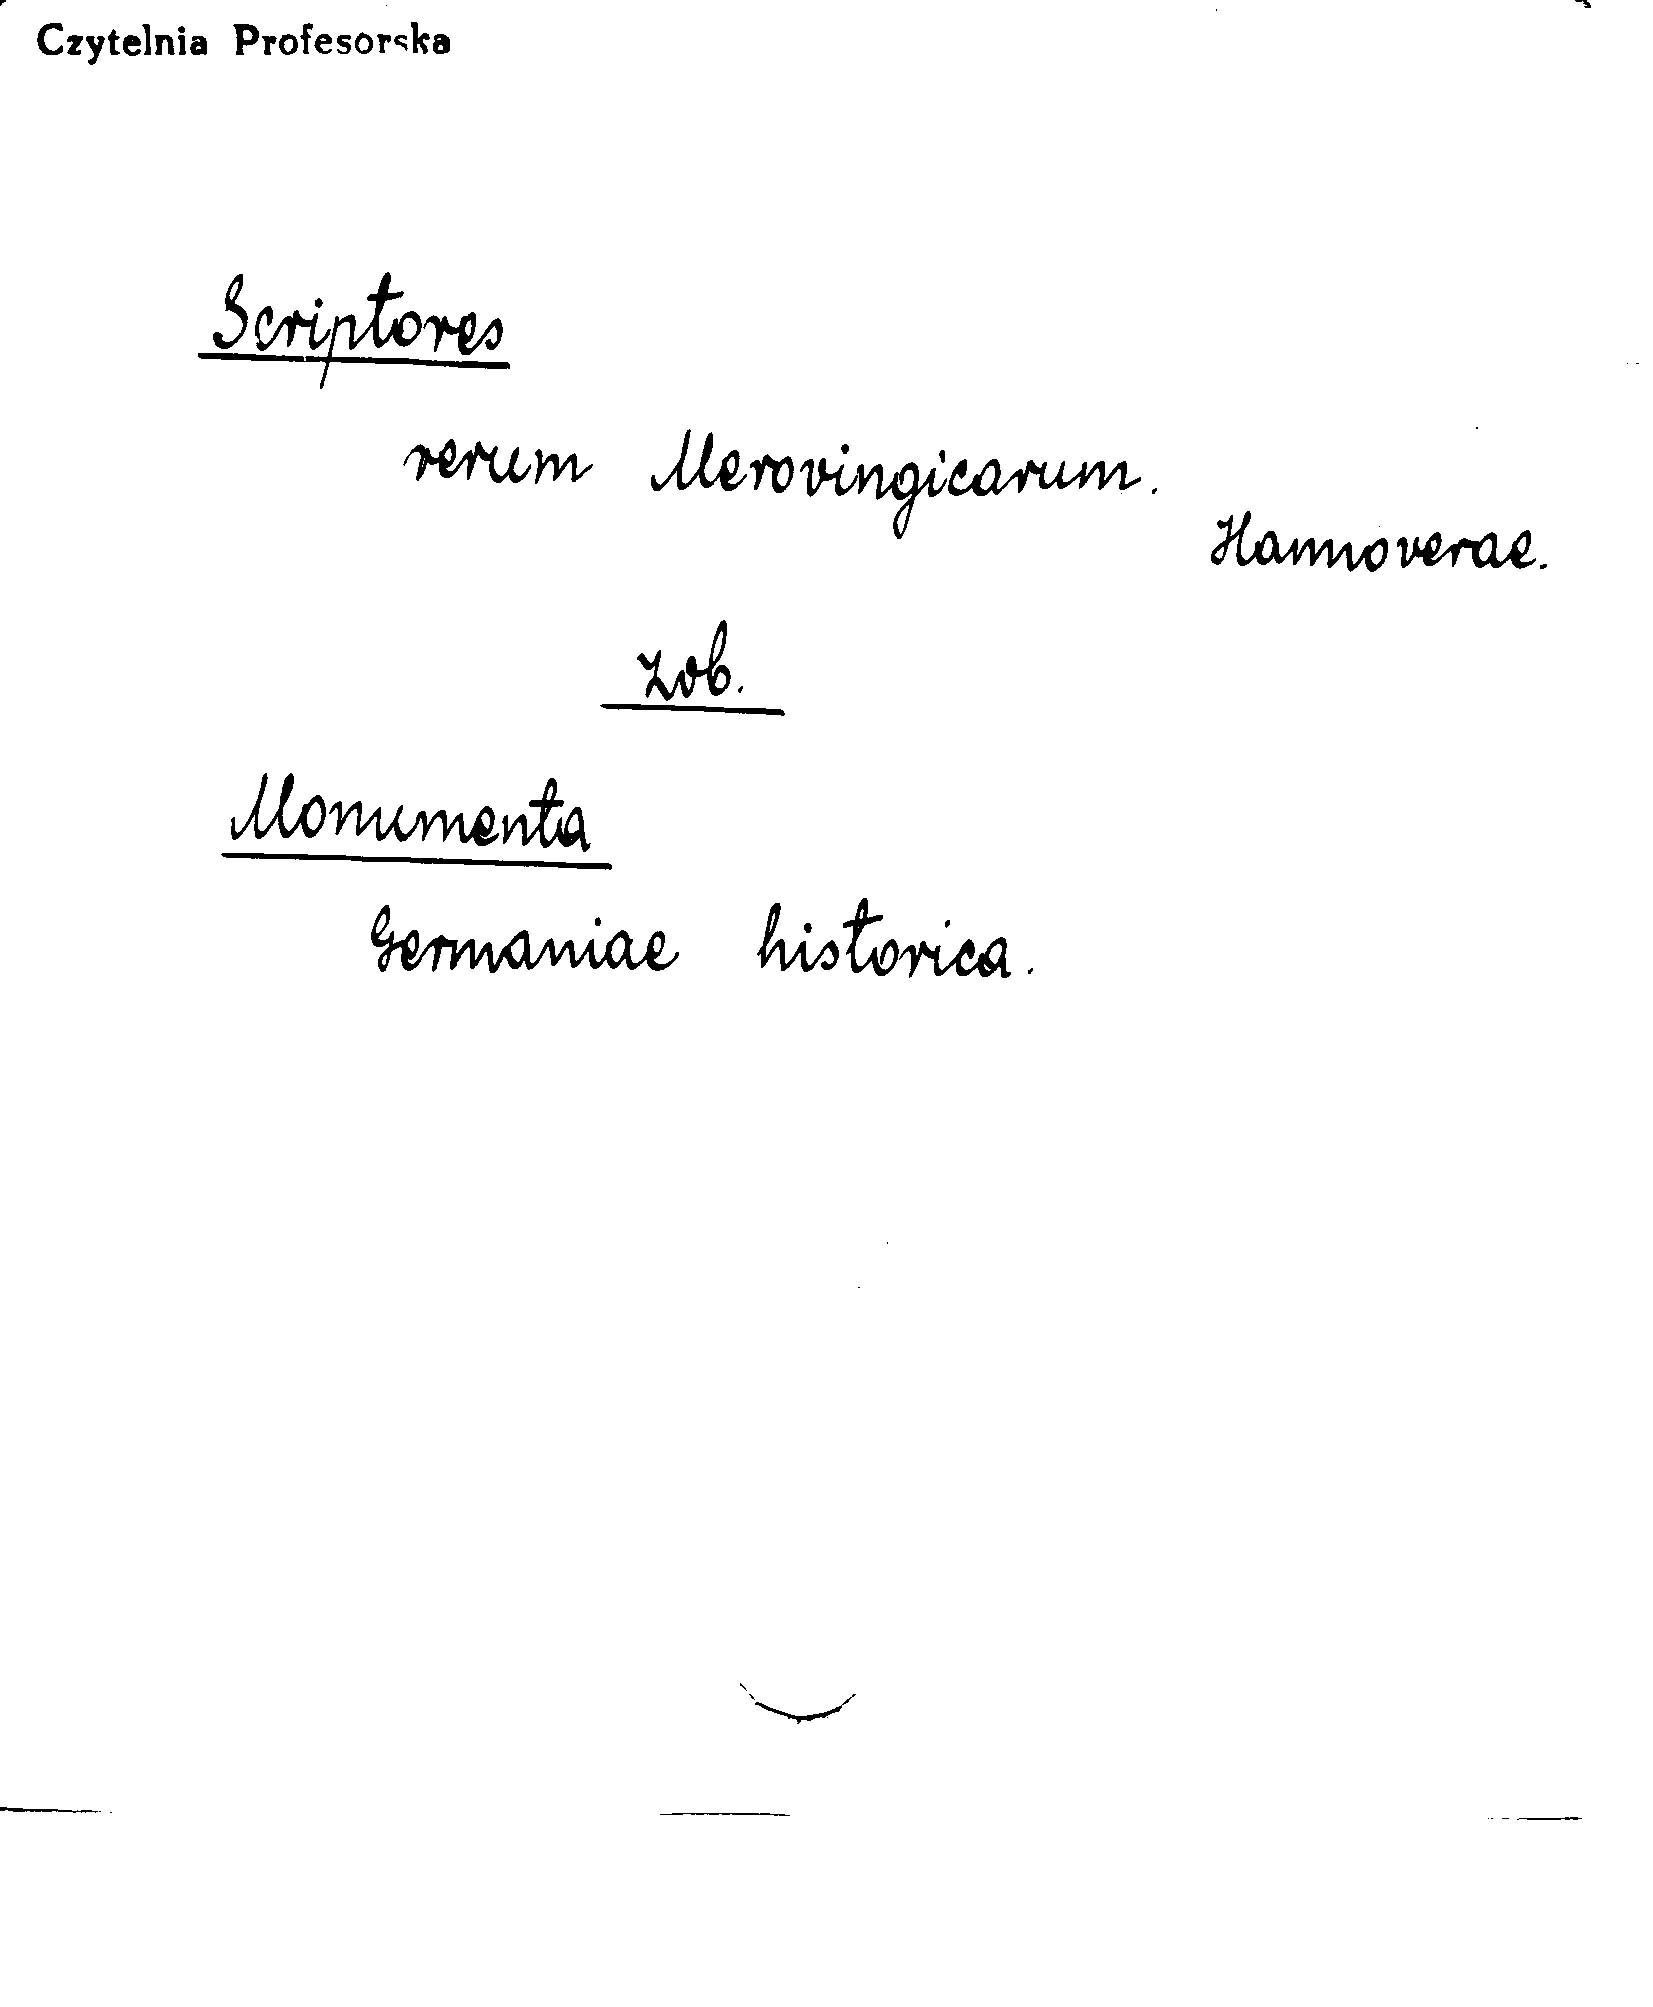 Czytelnia Profesorska
Scriptores
rerum Merovingicarum.
Hannoverae.
zob.
Monumenta
Germaniae historica.